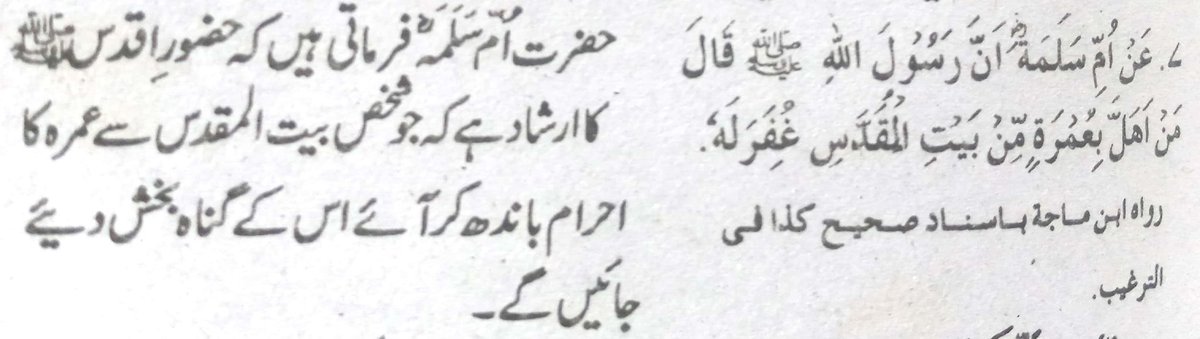 ۷. عَنْ اُمِّ سَلَمَةَؓ اَنَّ رَسُوْلَ اللهِ ﷺ قَالَ
مَنْ اَهَلَّ بِعُمْرَةٍ مِّنْ بَيْتِ الْمُقَدَّسِ غُفِرَ لَهٗ.
رواه ابن ماجة باسناد صحيح كذا فی
الترغيب.
حضرت اُمِّ سَلَمَہؓ فرماتی ہیں کہ حضورِ اقدس ﷺ
کا ارشاد ہے کہ جو شخص بیت المقدس سے عمرہ کا
احرام باندھ کر آئے اس کے گناہ بخش دیئے
جائیں گے۔